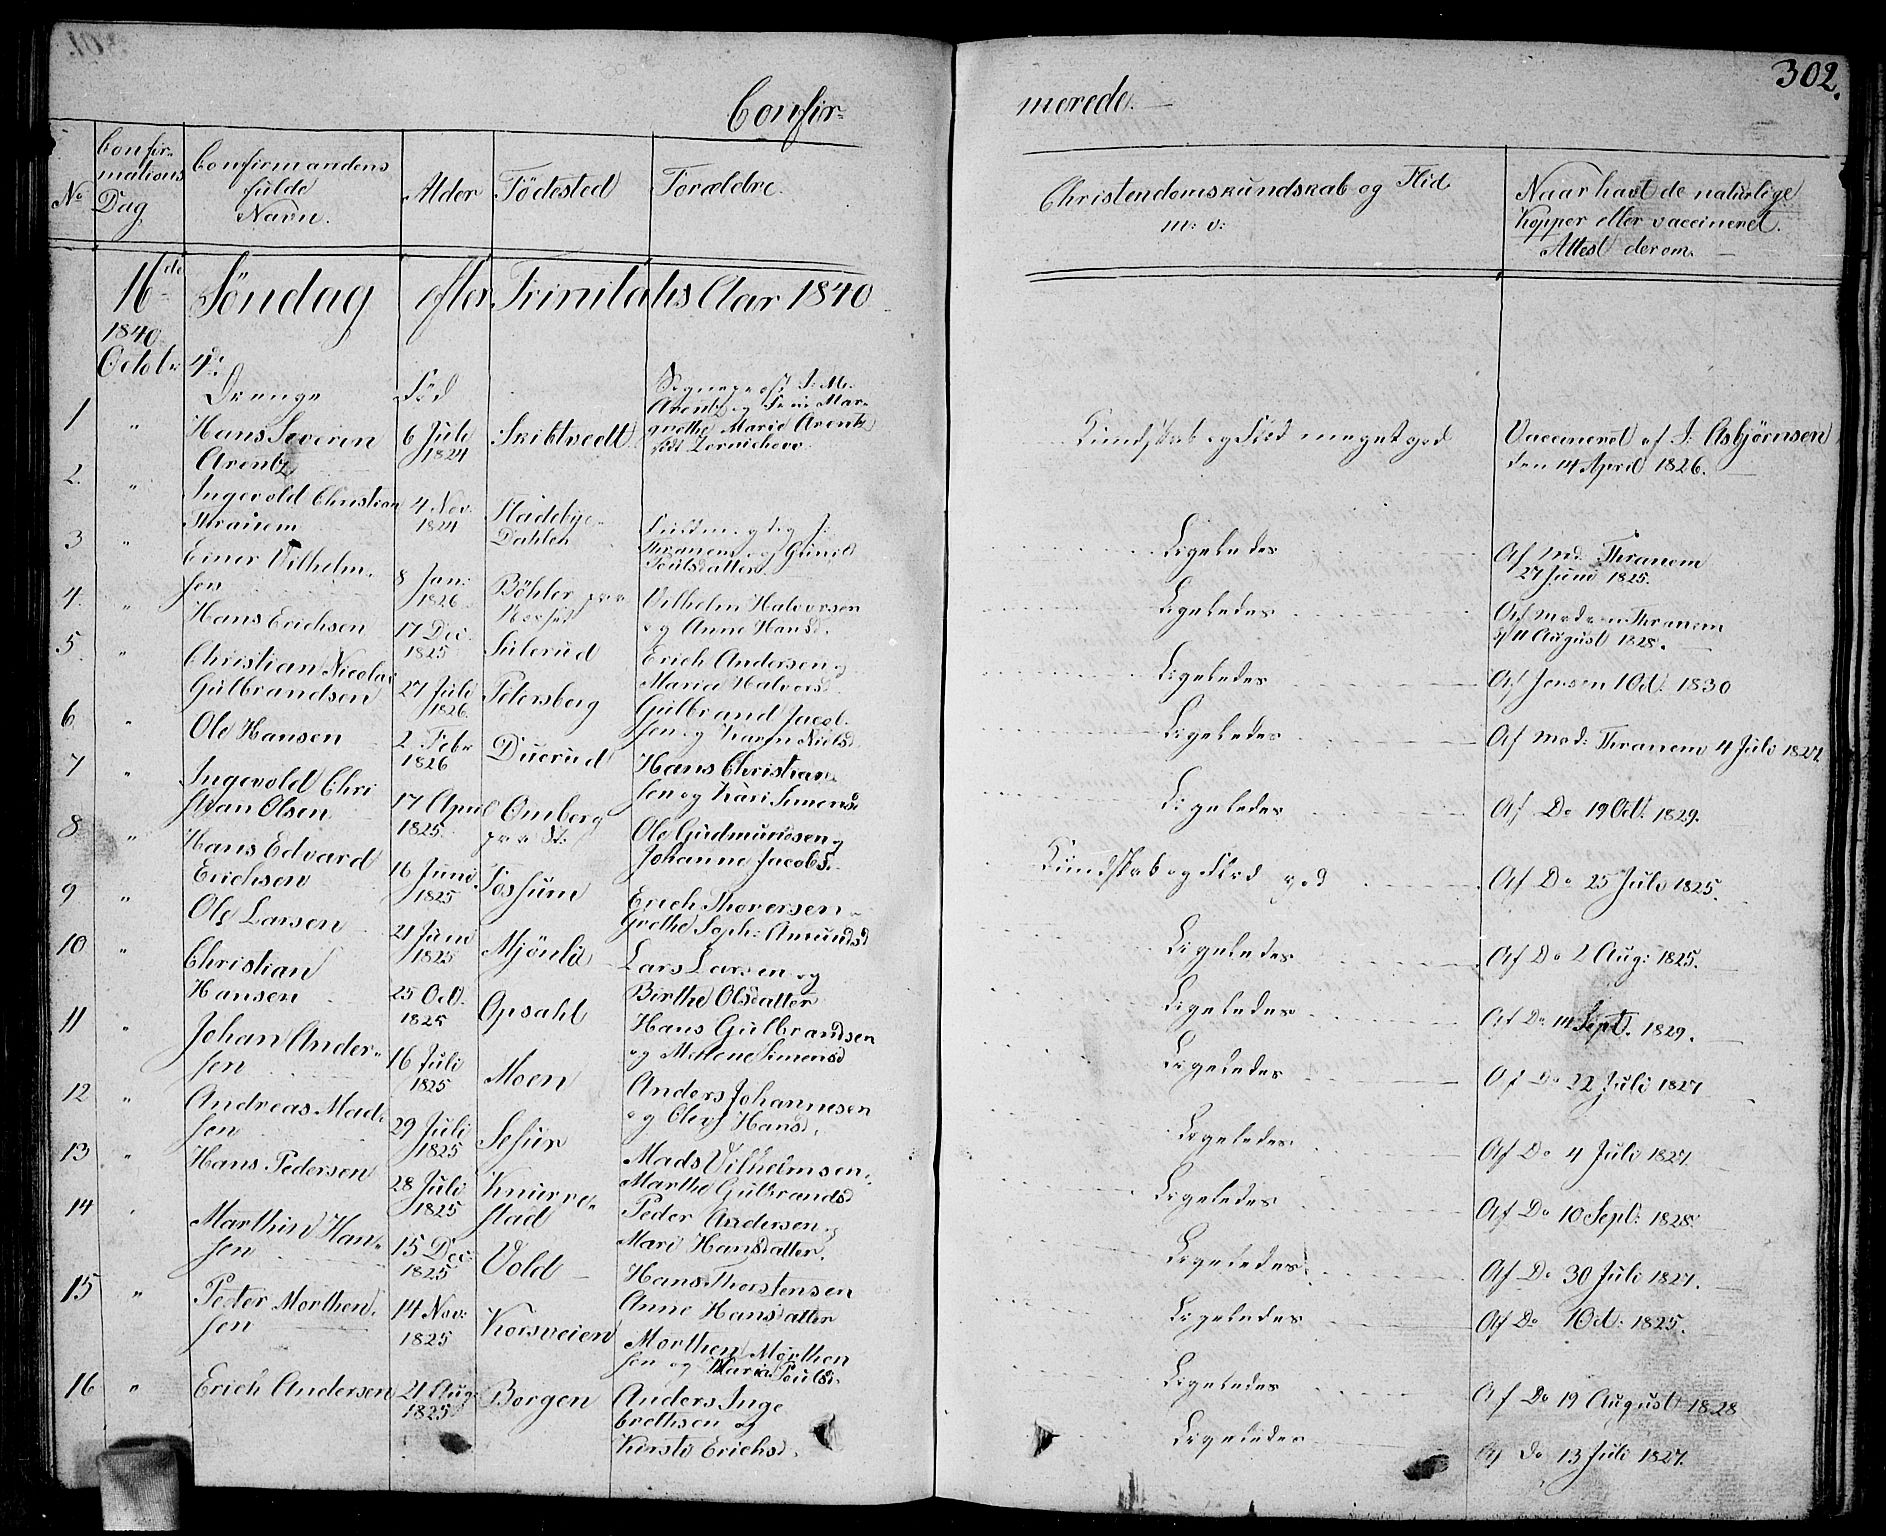 302.
Confir-
merede.
No
Confir-
mations
Dag
Confirmandens
fulde
Navn.
Alder
Födested
Forældre.
Christendomskundskab og Flid
m: v:
Naar havt de naturlige
Kopper eller vaccineret.
Attest derom.
16de Söndag efter Trinitatis Aar 1840
1840
Octobr 4d:
Drenge
Föd
1 " Hans Severin
Arentz
6 Juli
1824
Skibtvedt
Arentz og
grethe Marie Arentz
Kundskab og Flid meget god
Vaccineret af J: Asbjörnsen
den 14 April 1826.
2. " Ingevold Christian
Thranem
4 Nov.
1824
Dahlen
Thranem og Gunild
Poulsdatter
Ligeledes
Af Md. Thranem
27 Juni 1825.
3 " Einer Vilhelm-
sen
8 Jan:
1826
Böhler
Vilhelm Halvorsen
og Anne Hansd.
Ligeledes
Af Thranem
11 August 1828.
4. " Hans Erichsen
17 Dec.
1825
Sulerud
Erich Andersen og
Maria Halvorsd
Ligeledes
Af Jensen 1 Oct: 1830
5. " Christian Nicolai
Gulbrandsen
27 Juli
1826.
Petersborg
Gulbrand Jacob-
sen og Karen Nielsd
Ligeledes
Af Md: Thranem 4 Juli 1827.
6 " Ole Hansen
2 Febr
1826
Duerud
Hans Christian-
sen og Kari Simensd
Ligeledes
Af Do 19 Oct: 1829.
7 " Ingevold Chri
stian Olsen
17 April
1825.
Omberg
Ole Gudmundsen og
Johanne Jacobs.
Kundskab og Flid god
Af Do 25 Juli 1825.
8 " Hans Edvard
Erichsen
16 Juni
1825
Fossum
Erich Thoversen
Grethe Soph: Amundsd
Ligeledes
Af Do 2 Aug: 1825.
9 " Ole Larsen
21 Juni
1825
Mjönlie
Lars Larsen og
Birthe Olsdatter
Ligeledes
Af Do 14 Sept. 1829.
10 " Christian
Hansen
25 Oct.
1825
Opsahl
Hans Gulbrandsen
og Mellene Simensd
Ligeledes
Af Do 22 Juli 1827
11 " Johan Ander-
sen
16 Juli
1825
Moen
Anders Johannesen
og Olea Hansd.
Ligeledes
Af Do 4 Juli 1827.
12 " Andreas Mad-
sen
29 Juli
1825
Mads Vilhelmsen
Marthe Gulbrandsd
Ligeledes
Af Do 10 Sept: 1828.
13 " Hans Pedersen
28 Juli
1825
Knurre-
stad
Peder Andersen og
Mari Hansdatter.
Ligeledes
Af Do 30 Juli 1827.
14 " Marthin Han-
sen
15 Dec:
1825
Vold
Hans Thorstensen
Anne Hansdatter
Ligeledes
Af Do 1 Oct: 1825.
15 " Peter Morthen-
sen
14 Nov:
1825
Korsveien
Morthen Morthen
sen og Maria Poulsd.
Ligeledes
Af Do 19 August 1828
16 " Erich Andersen
21 Aug:
1825
Borgen
Anders Inge
brethsen og
Kirsti Erichsd.
Ligeledes
Af Do 13 Juli 1827.